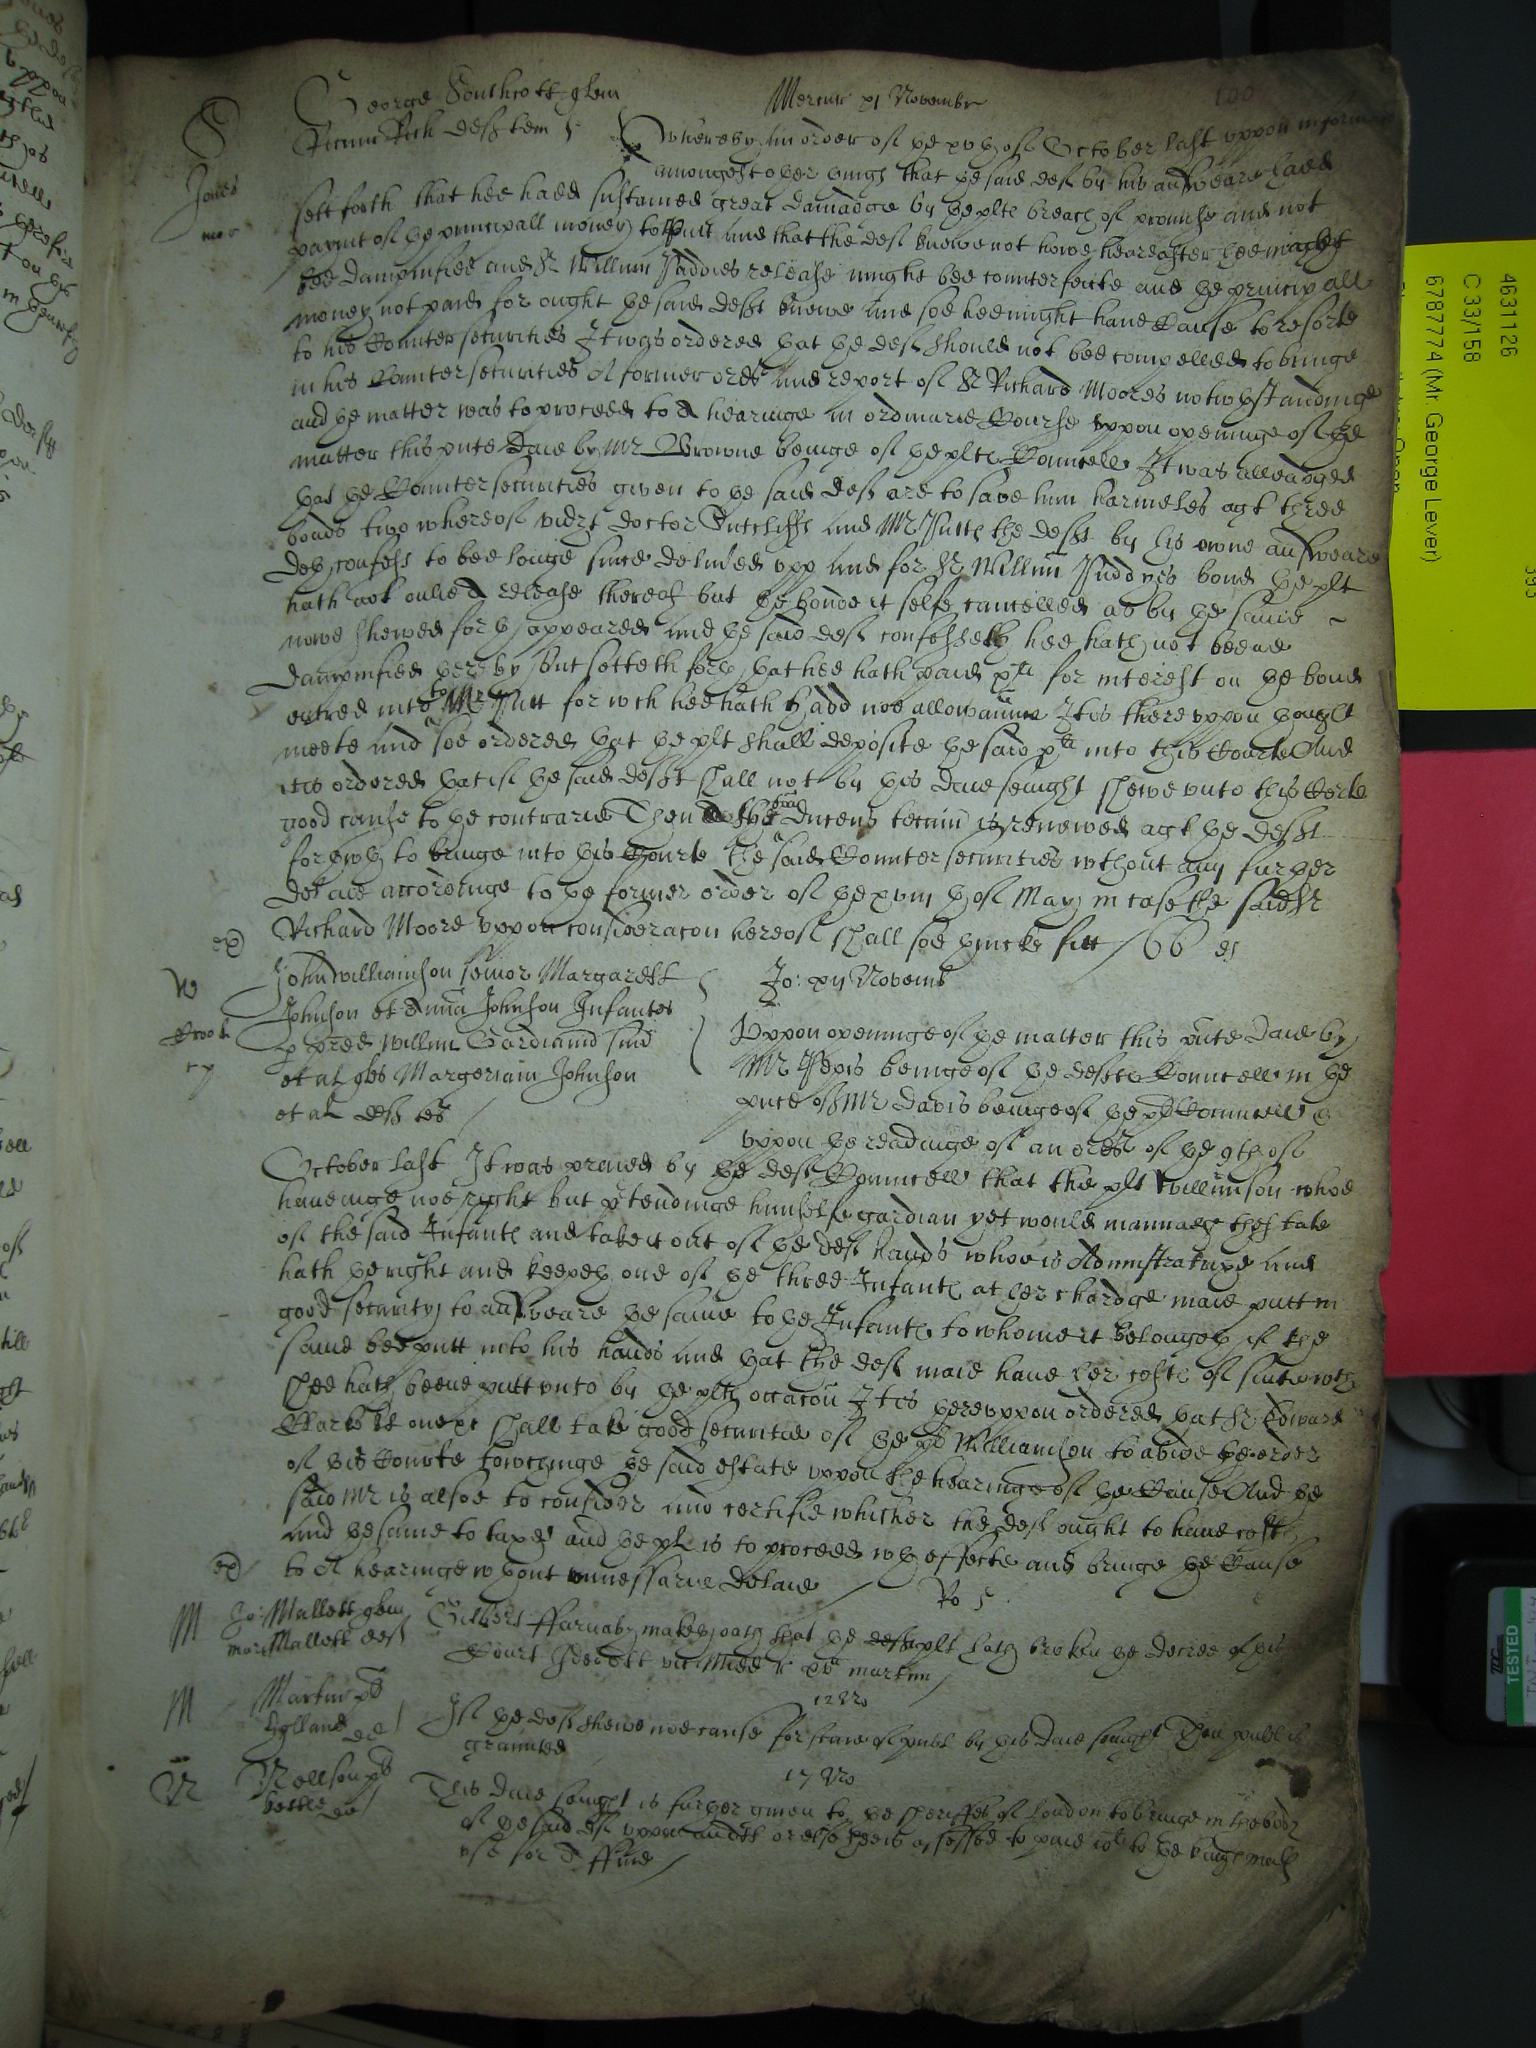 100
George Southcott quer
Mercur xj Novembr
S
Petrum Rich deft tem
Whereas by an order of the xvth of October last uppon informacon
Jones
amongst other things that the said deft by his answeare hadd
mor
sett forth that hee hadd sustained great damadge by the plts breach of promise and not
paymt of the principall money to and that the deft knewe not howe heareafter hee might
bee dampnified and Sr Willim Paddies release might bee counterfeite and the principall
money not paid for ought the said deft knewe and soe hee might have Cause to resorte
to his Counter securities It was ordered that the deft should not bee compelled to bringe
in his Countersecurities A former order and report of Sr Richard Moores notwthstandinge
and the matter was to proceed to A hearinge in ordinarie Course uppon openinge of the
matter this pnte Daie by Mr Browne beinge of the plts Councell It was alleadged
that the Countersecurities given to the said deft are to save him harmeles agt three
bonds two whereof vidzt doctor Sutcliffs and Mr Tutts the deft by his owne answeare
doth confess to bee longe since delivred upp and for Sr Willim Paddyes bond the plt
hath not onlie A release thereof but the bonde it selfe cancelled as by the same
nowe shewed forth appeared and the said deft confesseth hee hath not beene
dampnified thereby but setteth forth that hee hath paid xli for interest on the bond
entred into to Mr Tutt for wch hee hath hadd noe allowaunce It is thereuppon thought
meete and soe ordered that the plt shall deposite the said xli into this Courte And
it is ordered that if the said deft shall not by this daie senight shewe unto this Corte
good cause to the contrarie Then the ducens tecum is renewed agt the deft
forthwth to bringe into this Courte the said Countersecurities wthout any further
delaie accordinge to the former order of the xviijth of May in case the said Sr
Richard Moore uppon consideracon hereof shall soe thincke fitt
ex
John Williamson senior Margarett
Jo: xij Novemb
W
Johnson et Anna Johnson Infantes
Crook
p pred Willm Gardianu suu
Uppon openinge of the matter this pnte daie by
et al qts Margeriam Johnson
Mr beinge of the defts Councell in the
et al defts
pnce of Mr Davis beinge of the plts Councell
uppon the readinge of an order of the 9th of
October last It was praied by the defts Councell that the plt Willimson whoe
haveinge noe right but ptendinge himselfe gardian yet would mannadge thestate
of the said Infants and take it out of the defts hands whoe is Administratrixe and
hath the right and keepeth one of the three Infants at her chardge maie putt in
good security to answeare the same to the Infants to whome it belongeth if the
same bee putt into his hands and that the deft maie have her costs of suite wch
shee hath beene putt unto by the plts occacon It is thereuppon ordered that Sr Edward
Clarke knt one &c shall take good securitie of the plt Williamson to abide the order
of this Courte towchinge the said estate uppon the hearinge of the Cause And the
said Mr is alsoe to consider and certifie whither the deft ought to have costs
and the same to taxe and the plt is to proceed wth effecte and bringe the Cause
ex
to A hearinge wthout unnessarie delaie
Ro
M
Jo: Mallett quer
Gilbert ffarnaby maketh oath that the plt hath broken the decree of this
Mallett deft
Court
M
Martin plt
12 No
Hylland def
If the deft shewe noe cause for staie of publ by this daie senight Then publ is
graunted
N
Nellson plt
17 No
def
This daie senight is further given to the sheriffes of London to bringe in the body
of the said deft uppon or else hee is assessed to paie to the kings mats
use for A ffine
4631126
C 33/158
6787774 (Mr. George Lever)
TESTED